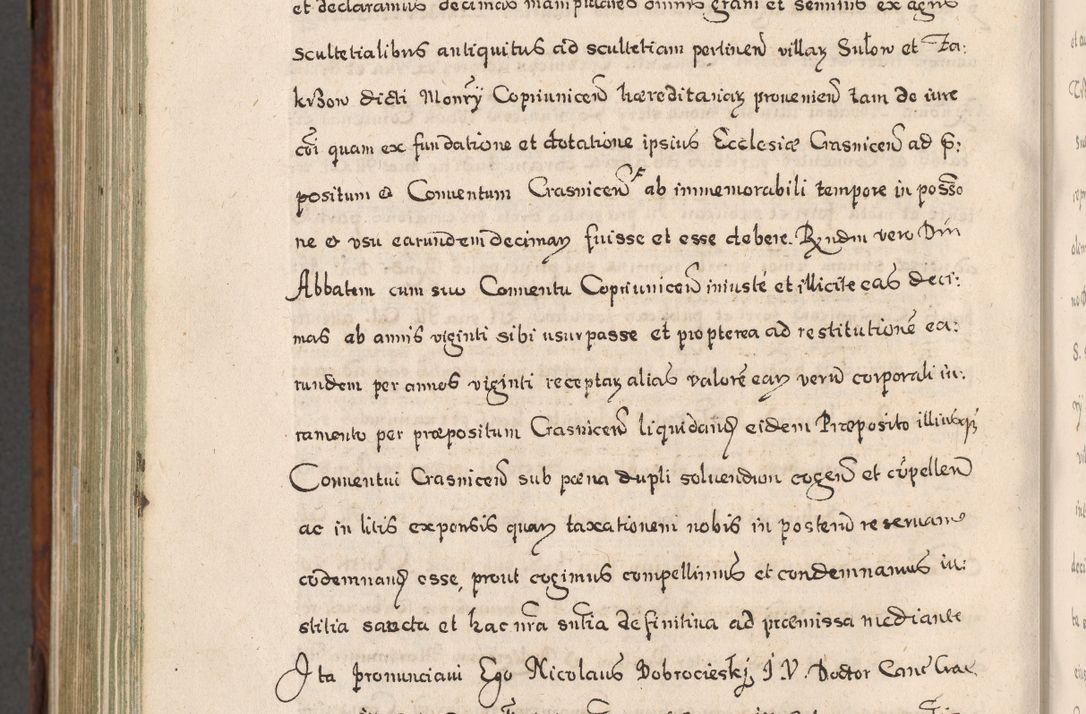 et declaramus decimas manipulares omnis grani et seminis ex agris
scultetialibus antiquitus ad scultetiam pertineñ villaꝝ Sułow et Za:
krzow dicti Monrÿ Copriunicen̄ hæreditariaꝝ provenieñ tam de iure
cōi quam ex fundatione et dotatione ipsius Ecclesiæ Crasnicen̄ ad p̄:
positum & Conuentum Crasnicen̄ ab immemorabili tempore in posso
ne & vsu earundem decimaꝝ fuisse et esse debere. Rndm vero Dm̄
Abbatem cum suo Conuentu Copriunicen̄ iniustè et illicite eas deci:
mas ab annis viginti sibi usurpasse et propterea ad restitutionē ea:
rundem per annos viginti receptaꝝ alias valorē eaꝝ verū corporali iu:
ramento per præpositum Crasnicen̄ liquidand̄ eidem Præposito illiusqꝫ
Conuentui Crasnicen̄ sub pæna dupli soluendum cogen̄ et cōpellen̄
ac in litis expensis quaꝝ taxationem nobis in posterū reseruamus
cōdemnand̄ esse, prout cogimus compellimus et condemnamus iu:
stitia sancta et hac nr̄a sn̄tia definitiua ad præmissa mediante
Ita pronunciaui Ego Nicolaus Dobrocieskj I. V. Doctor Canc Crac